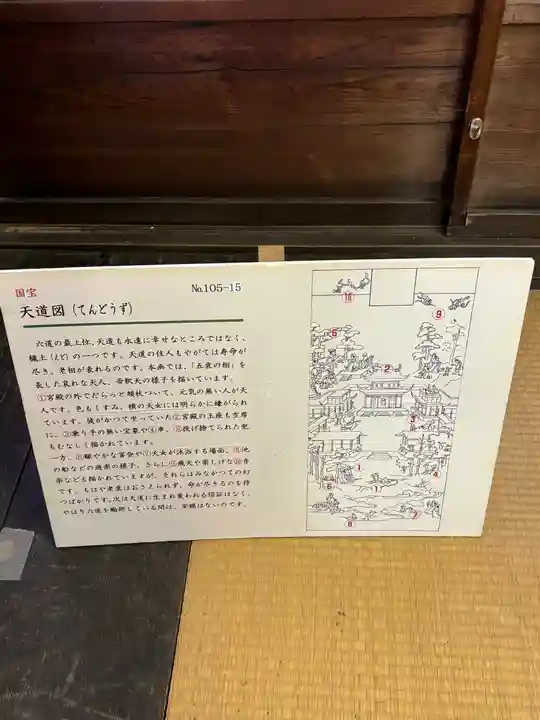 国宝
No.105-15
天道図(てんどうず)
六道の最上位、天道も永遠に幸せなところではなく、
穢土(えど)の一つです。天道の住人もやがては寿命が
尽き、老相が表れるのです。本画では、「五衰の相」を
表した哀れな天人、帝釈天の様子を描いています。
①宮殿の外でだらっと頬杖ついて、元気の無い人が天
人です。色もくすみ、横の天女には明らかに嫌がられ
ています。彼がかつて坐っていた②宮殿の玉座も空席
に、③乗り手の無い宝象や④車、⑤投げ捨てられた兜
もむなしく描かれています。
一方、⑥賑やかな宴会や⑦天女が沐浴する場面、⑧池
の船などの遊楽の様子、さらに⑨飛天や楽しげな⑩音
楽なども描かれていますが、それらはみなかつての幻
です。もはや老衰はおさえられず、命が尽きるのを待
つばかりです。次は天道に生まれ変われる保証はなく、
やはり六道を輪廻している間は、安穏はないのです。
10
9
6
2
1
4
5
8
7